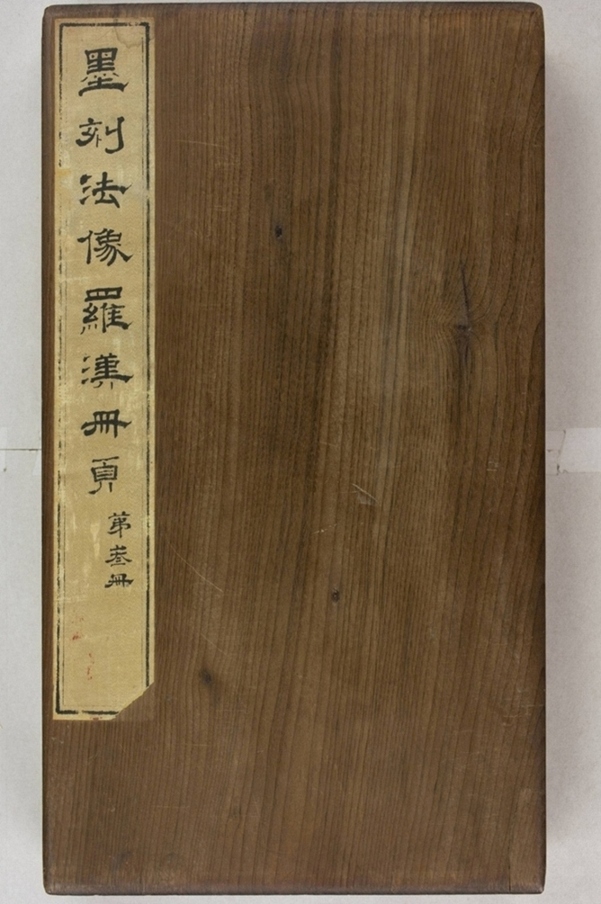 墨刻法像羅漢冊頁
第叁冊